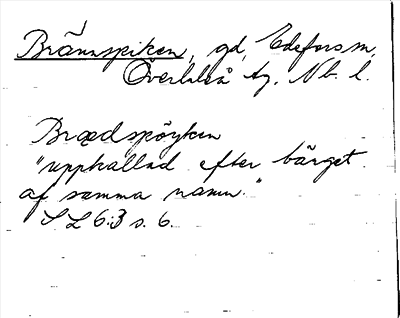 Brännspiken, gd, Edefors sn,
Överluleå tg, Nb. l.
Brædspöyken
"uppkallad efter bärget
af samma namn."
S L 6:3 s. 6.